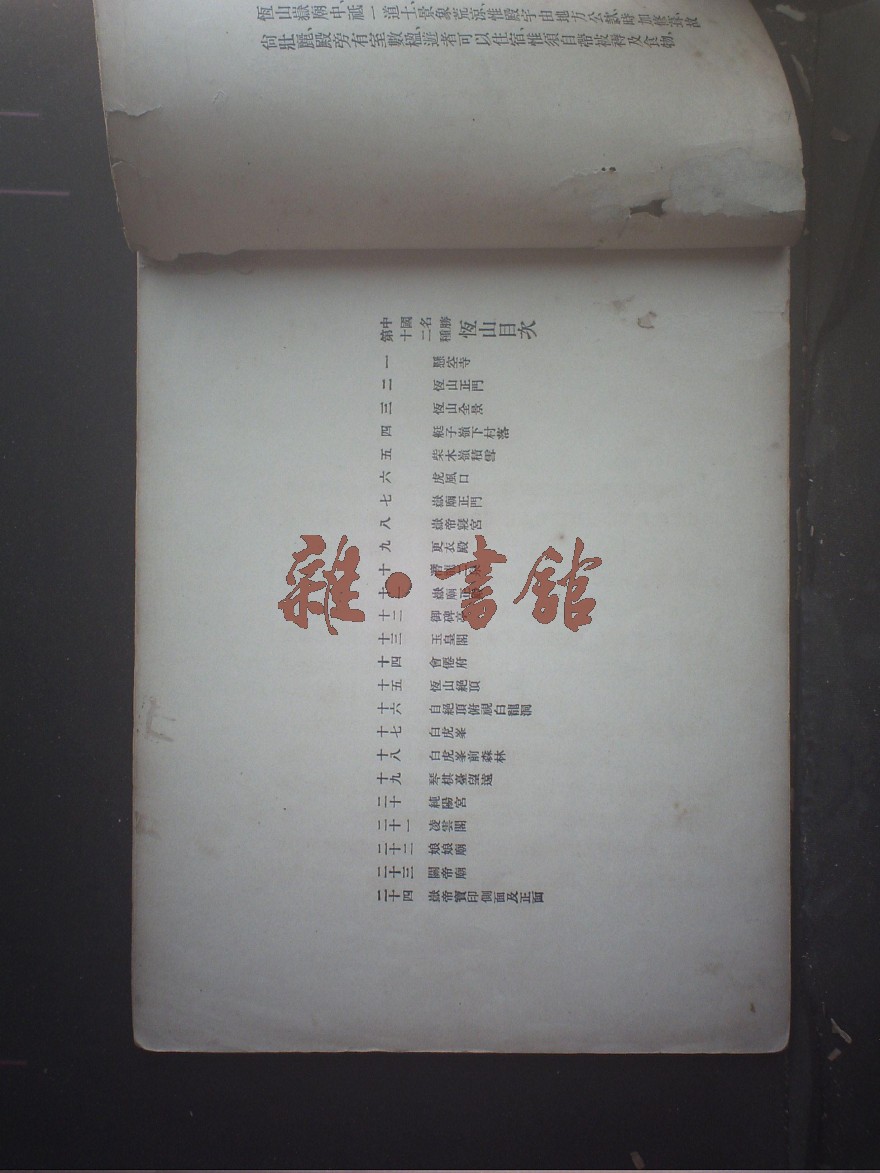 恆山嶽廟中,祗一道士,景象荒涼,惟殿宇由地方公款,時加修葺,故
尚壯麗,殿旁有室數楹,遊者可以住宿,惟須自帶被褥及食物,
中國名勝
第十二種
恆山目次
一 懸空寺
二 恆山正門
三 恆山全景
四 艇子嶺下村落
五 柴木嶺積雪
六 虎風口
七 嶽廟正門
八 嶽帝寢宮
九 更衣殿
十
十一 嶽廟
十二 御碑亭
十三 玉皇閣
十四 會僊府
十五 恆山絕頂
十六 自絕頂俯視白龍洞
十七 白虎峯
十八 白虎峯前森林
十九 琴棋臺望遠
二十 純陽宮
二十一 凌雲閣
二十二 娘娘廟
二十三 關帝廟
二十四 嶽帝寶印側面及正面
雜·書館